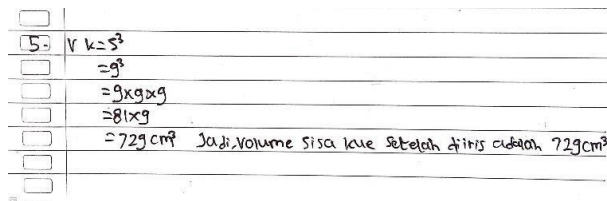 5. V k=S³
=9³
=9x9x9
=81x9
=729 cm³ Jadi, volume sisa kue setelah diiris adalah 729cm³